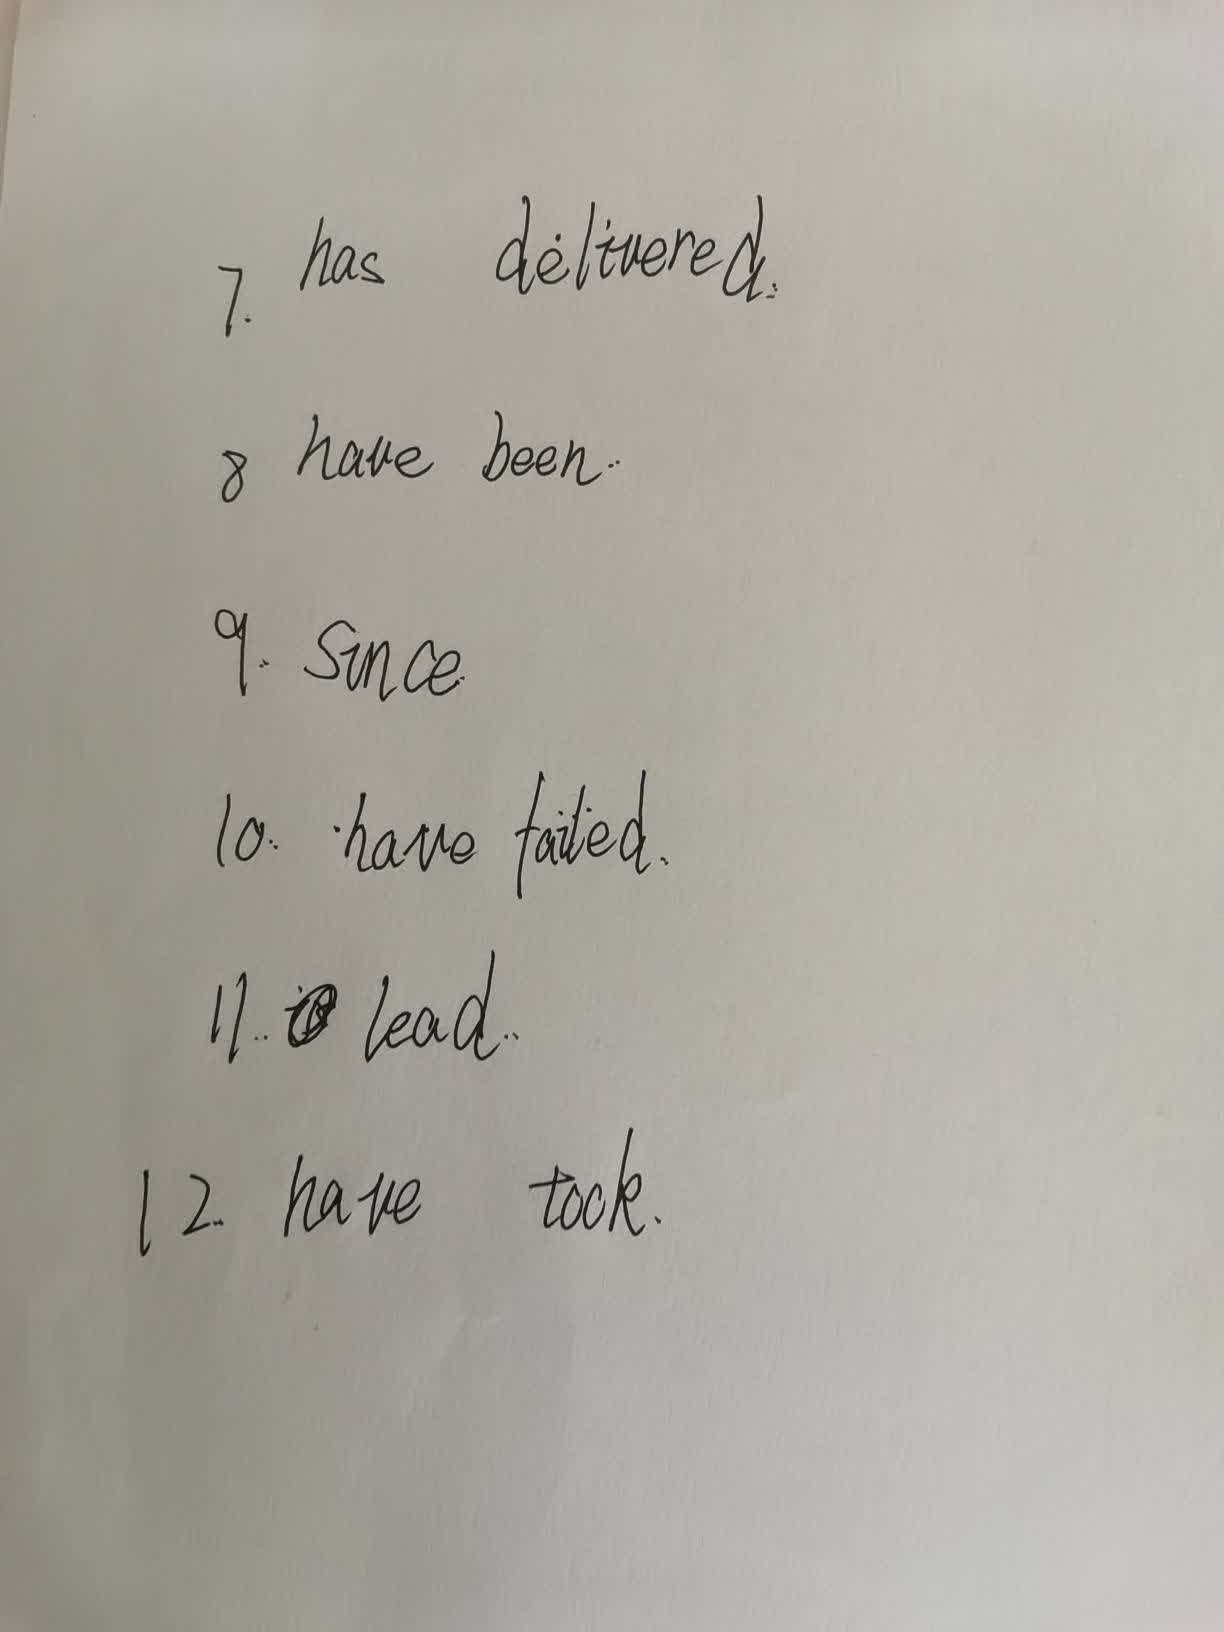 7. has delivered.
8 have been.
9. Since.
10. have failed.
11. lead.
12. have took.